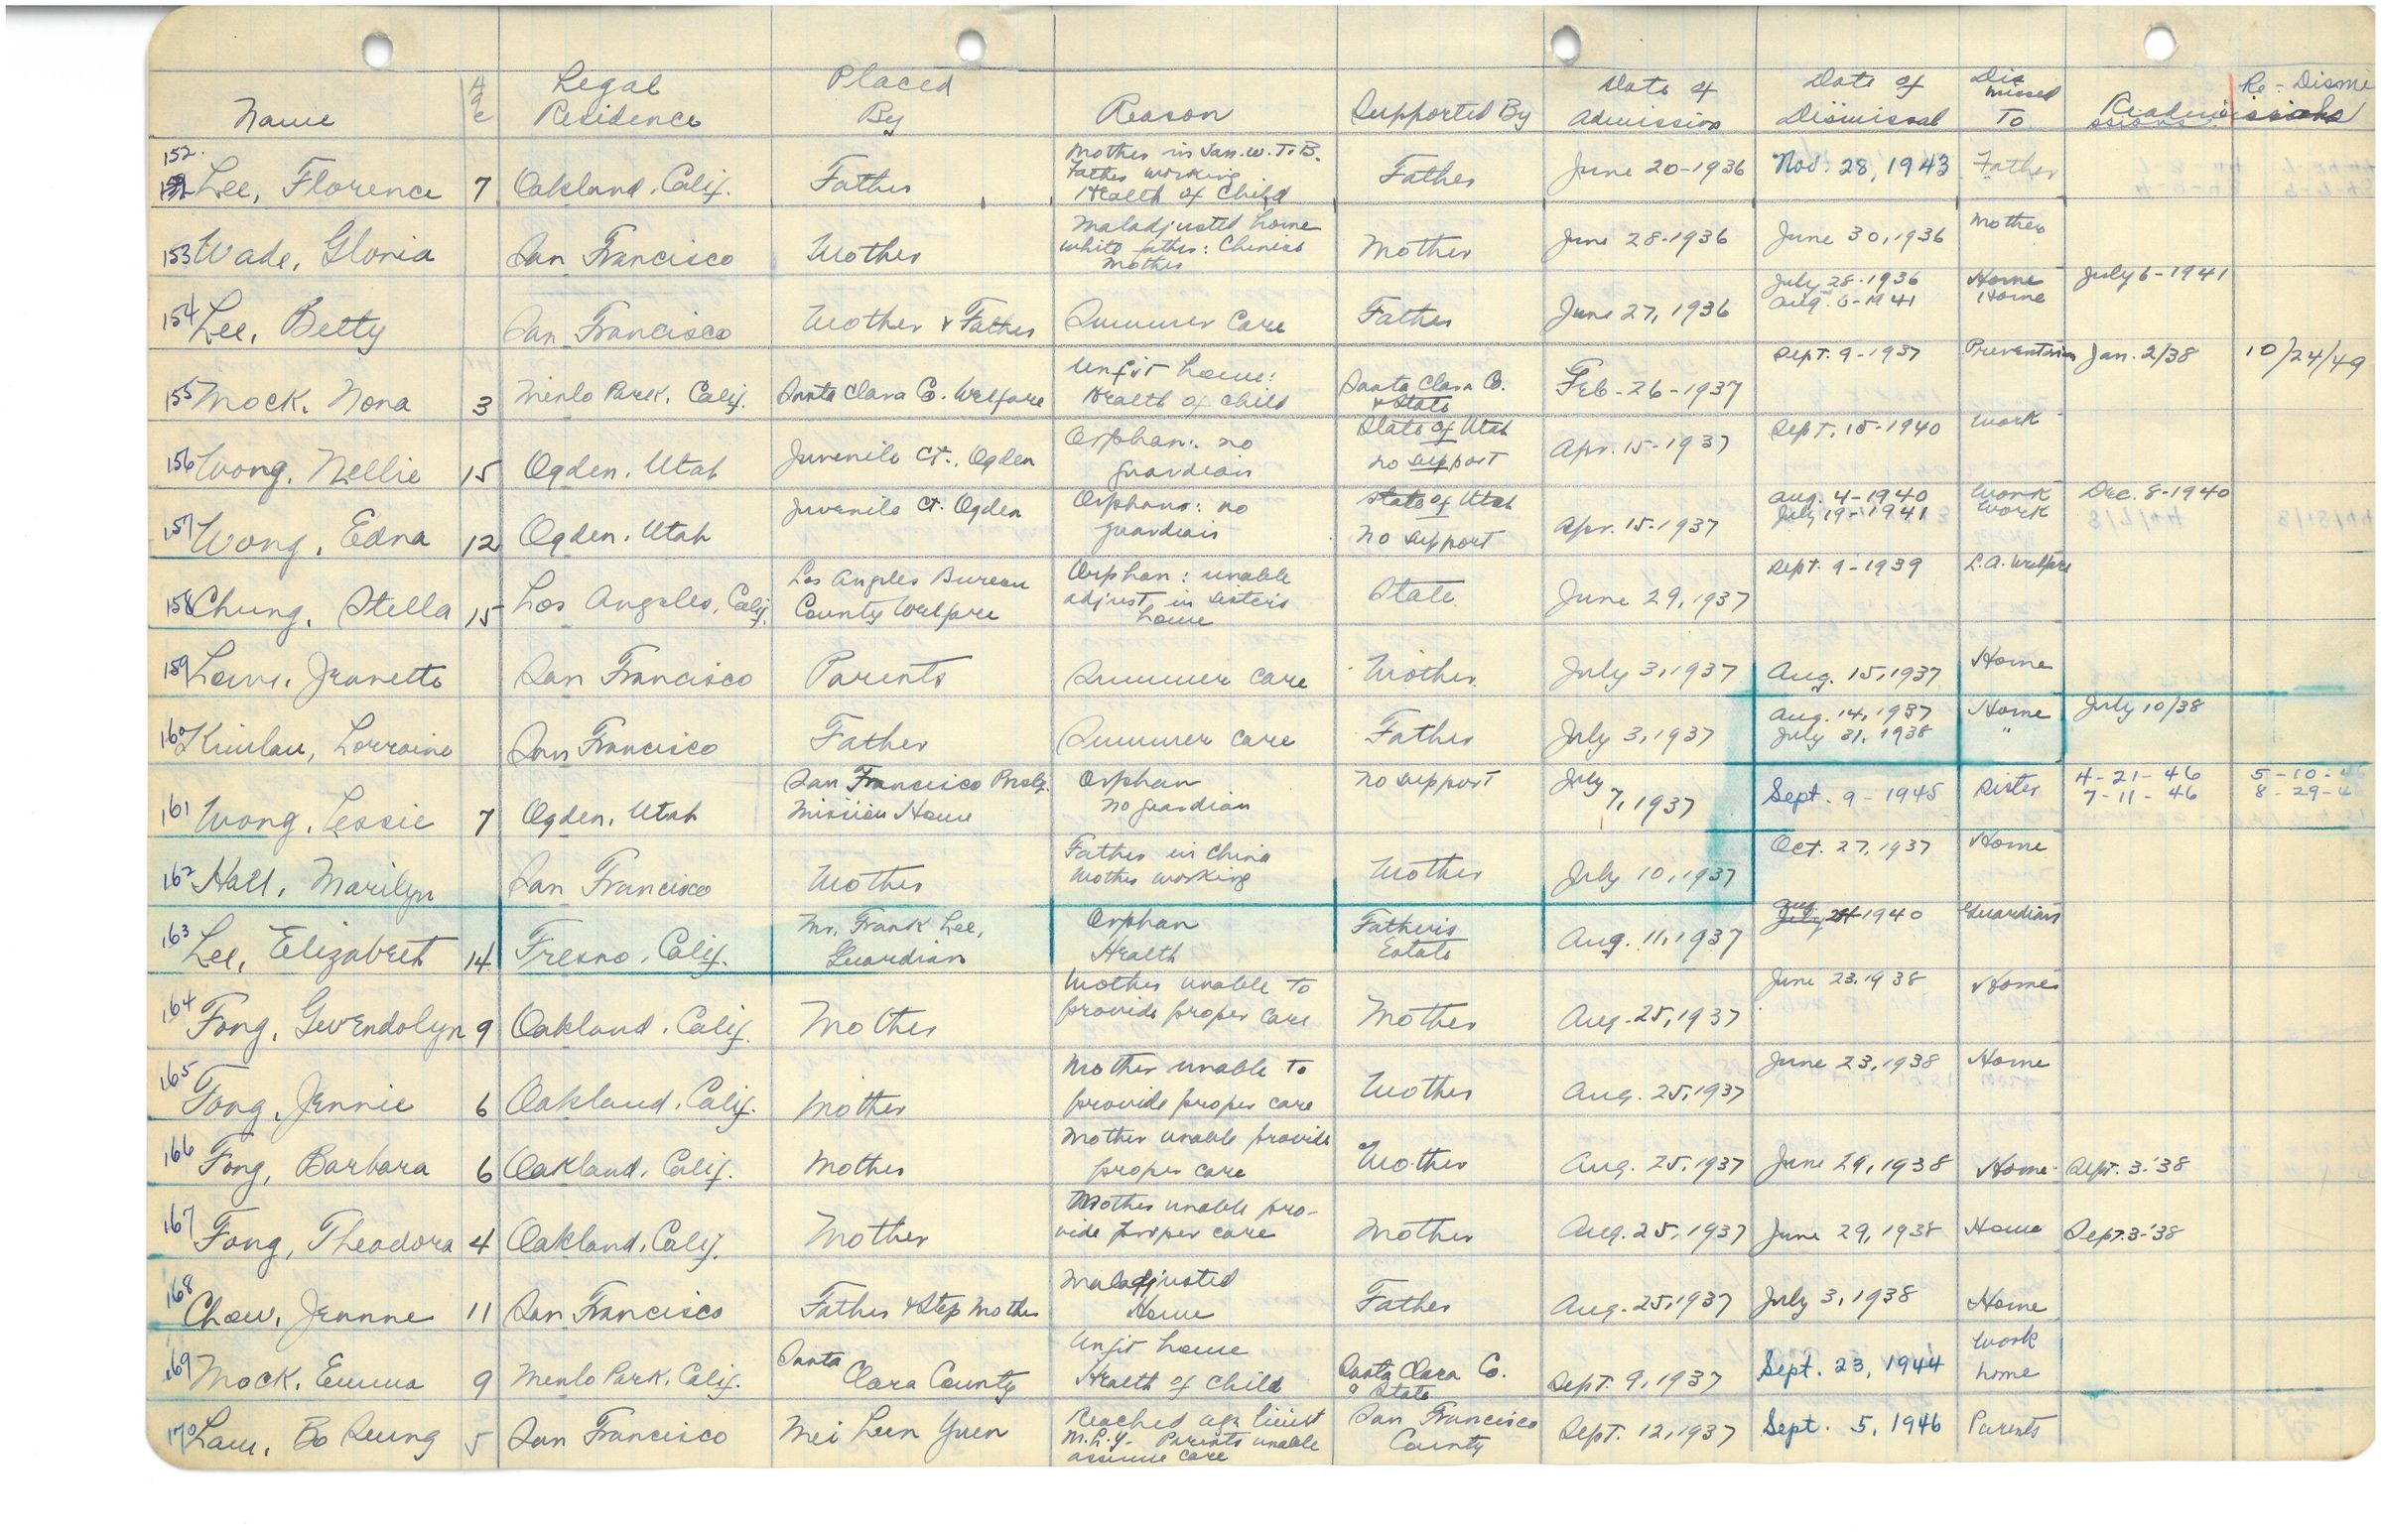 Name Age Legal Residence Placed By Reason Supported By Date of Admission Date of Dismissal Dismissed To Readmissions Re-Dismi
152. Lee, Florence 7 Oakland, Calif. Father Mother in San. w. T.B. Father working Health of Child Father June 20-1936 Nov. 28, 1943 Father
153 Wade, Gloria San Francisco Mother Maladjusted home white father: Chinese mother Mother June 28-1936 June 30, 1936 Mother
154 Lee, Betty San Francisco Mother & Father Summer Care Father June 27, 1936 July 28-1936 Aug. 6-1941 Home Home July 6-1941
155 Mock, Nona 3 Menlo Park, Calif. Santa Clara Co. Welfare Unfit home: Health of child Santa Clara Co. & State Feb-26-1937 Sept. 9-1937 Preventorium Jan. 2/38 10/24/49
156 Wong, Nellie 15 Ogden, Utah Juvenile Ct., Ogden Orphan: no guardian State of Utah no support Apr. 15-1937 Sept. 15-1940 Work
157 Wong, Edna 12 Ogden, Utah Juvenile Ct. Ogden Orphans: no guardian State of Utah no support Apr. 15-1937 Aug. 4-1940 July 19-1941 Work Work Dec. 8-1940
158 Chung, Stella 15 Los Angeles, Calif. Los Angeles Bureau County Welfare Orphan: unable adjust in sister's home State June 29, 1937 Sept. 9-1939 L.A. Welfare
159 Jeanette San Francisco Parents Summer care Mother July 3, 1937 Aug. 15, 1937 Home
160 Kinlau, Lorraine San Francisco Father Summer care Father July 3, 1937 Aug. 14, 1937 July 31, 1938 Home " July 10/38
161 Wong, Lessie 7 Ogden, Utah San Francisco Mission Home Orphan no guardian no support July 7, 1937 Sept. 9-1945 Sister 4-21-46 7-11-46 5-10-4 8-29-4
162 Hall, Marilyn San Francisco Mother Father in China Mother working Mother July 10, 1937 Oct. 27, 1937 Home
163 Lee, Elizabeth 14 Fresno, Calif. Mr. Frank Lee, Guardian Orphan Health Father's Estate Aug. 11, 1937 Aug 1940 Guardian
164 Fong, Gwendolyn 9 Oakland, Calif. Mother Mother unable to provide proper care Mother Aug. 25, 1937 June 23, 1938 Home
165 Fong, Jennie 6 Oakland, Calif. Mother Mother unable to provide proper care Mother Aug. 25, 1937 June 23, 1938 Home
166 Fong, Barbara 6 Oakland, Calif. Mother Mother unable provide proper care Mother Aug. 25, 1937 June 29, 1938 Home Sept. 3.'38
167 Fong, Theodora 4 Oakland, Calif. Mother Mother unable pro- vide proper care Mother Aug. 25, 1937 June 29, 1938 Home Sept. 3-'38
168 Chow, Jeanne 11 San Francisco Father & Step Mother Maladjusted Home Father Aug. 25, 1937 July 3, 1938 Home
169 Mock, Emma 9 Menlo Park, Calif. Santa Clara County Unfit home Health of Child Santa Clara Co. & State Sept. 9, 1937 Sept. 23, 1944 Work home
170 Lau, Bo Seung 5 San Francisco Mei Lun Yuen Reached age limit M.L.Y. Parents unable assume care San Francisco County Sept. 12, 1937 Sept. 5, 1946 Parents